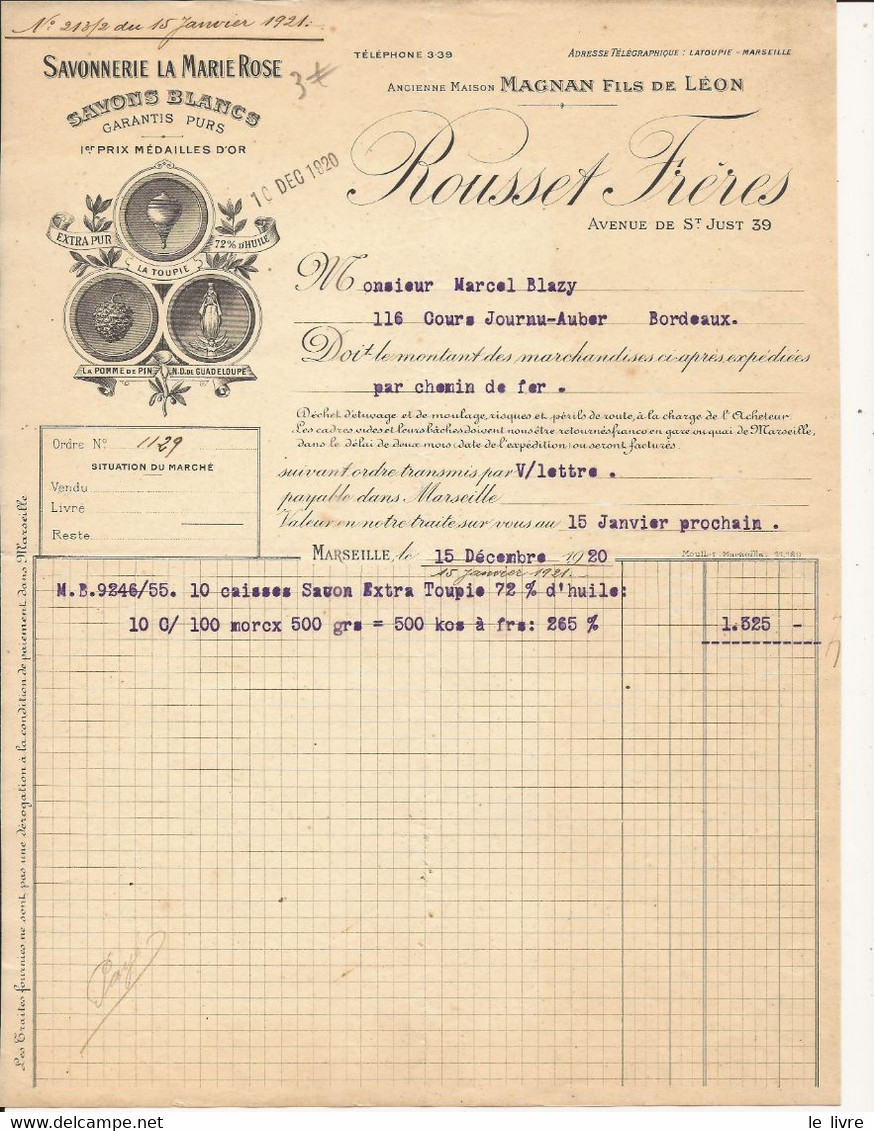 No 213/2 du 15 Janvier 1921.
SAVONNERIE LA MARIE ROSE
SAVONS BLANCS
GARANTIS PURS
1er PRIX MÉDAILLES D'OR
EXTRA PUR
72% D'HUILE
LA TOUPIE
LA POMME DE PIN
N.D. DE GUADELOUPE
10 DEC 1920
TÉLÉPHONE 3-39
ADRESSE TÉLÉGRAPHIQUE : LATOUPIE - MARSEILLE
ANCIENNE MAISON MAGNAN FILS DE LÉON
Rousset Frères
AVENUE DE ST JUST 39
Monsieur Marcel Blazy
116 Cours Journu-Auber Bordeaux.
Doit le montant des marchandises ci-après expédiées
par chemin de fer .
Déchet d'étuvage et de moulage, risques et périls de route, à la charge de l'Acheteur.
Les cadres vides et leurs bâches doivent nous être retournés franco en gare ou quai de Marseille,
dans le délai de deux mois (date de l'expédition) ou seront facturés.
suivant ordre transmis par V/lettre .
payable dans Marseille
Valeur en notre traite sur vous au 15 Janvier prochain .
Ordre No. 1129
SITUATION DU MARCHÉ
Vendu
Livré
Reste
MARSEILLE, le 15 Décembre 1920
15 Janvier 1921.
Moullot-Marseille.
M.B.9246/55. 10 caisses Savon Extra Toupie 72 % d'huile:
10 C/ 100 morcx 500 grs = 500 kos à frs: 265 % 1.325 -
Payé
Les Traites fournies ne sont pas une dérogation à la condition de paiement dans Marseille
le livre